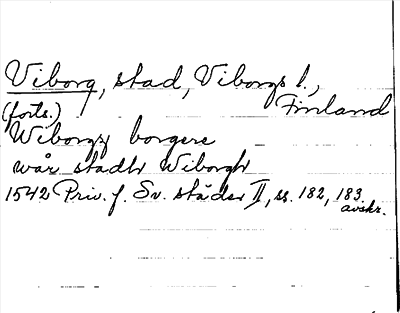 Viborg, stad, Viborgs l.,
Finland
(forts.)
Wiborgz borgere
wår stadh Wiborgh
1542 Priv. f. Sv. städer II, ss. 182, 183
avskr.